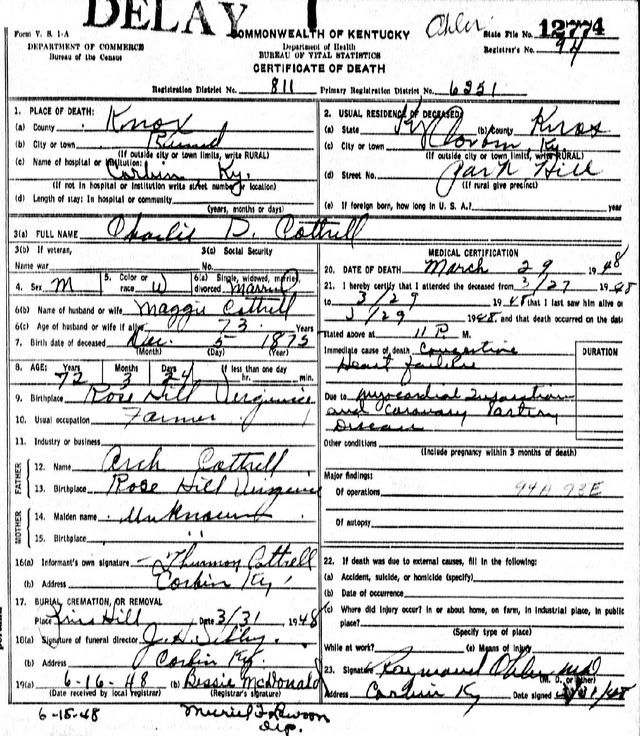 DELAY
Form V. S. 1-A
DEPARTMENT OF COMMERCE
Bureau of the Census
COMMONWEALTH OF KENTUCKY
Department of Health
BUREAU OF VITAL STATISTICS
CERTIFICATE OF DEATH
Ohler
State File No. 12774
Registrar's No. 94
Registration District No. 811 Primary Registration District No. 6251
1. PLACE OF DEATH:
(a) County Knox
(b) City or town Rural
(If outside city or town limits, write RURAL)
(c) Name of hospital or institution: Corbin Ky.
(If not in hospital or institution write street number or location)
(d) Length of stay: In hospital or community
(years, months or days)
2. USUAL RESIDENCE OF DECEASED:
(a) State Ky (b) County Knox
(c) City or town Corbin, Ky
(If outside city or town limits, write RURAL)
(d) Street No. Hill
(If rural give precinct)
(e) If foreign born, how long in U. S. A.? year
3(a) FULL NAME Charlie D. Cottrell
3(b) If veteran,
Name war
3(c) Social Security
No.
4. Sex M
5. Color or race W
6(a) Single, widowed, married, divorced Married
6(b) Name of husband or wife Maggie Cottrell
6(c) Age of husband or wife if alive 73 Years
7. Birth date of deceased Dec. 5 1875
(Month) (Day) (Year)
8. AGE: Years 72 Months 3 Days 24 If less than one day
hr. min.
9. Birthplace Rose Hill Virginia
10. Usual occupation Farmer
11. Industry or business
FATHER
12. Name Arch Cottrell
13. Birthplace Rose Hill Virginia
MOTHER
14. Maiden name Unknown
15. Birthplace " "
16(a) Informant's own signature Thurmon Cottrell
(b) Address Corbin Ky.
17. BURIAL, CREMATION, OR REMOVAL
Place Hill Date 3/31 1948
18(a) Signature of funeral director
(b) Address Corbin Ky.
19(a) 6-16-48 (b) Bessie McDonald
(Date received by local registrar) (Registrar's signature)
6-15-48
MEDICAL CERTIFICATION
20. DATE OF DEATH March 29 1948
21. I hereby certify that I attended the deceased from 3/27 1948
to 3/29 1948 that I last saw him alive on
3/29 1948, and that death occurred on the date
stated above at 11 P. M.
Immediate cause of death Congestive
Heart failure
DURATION
Due to Myocardial Infarction
and Coronary Artery
Disease
Other conditions
(Include pregnancy within 3 months of death)
Major findings:
Of operations 94A 93E
Of autopsy
22. If death was due to external causes, fill in the following:
(a) Accident, suicide, or homicide (specify)
(b) Date of occurrence
(c) Where did injury occur? In or about home, on farm, in industrial place, in public
place?
(Specify type of place)
While at work? (e) Means of injury
23. Signature Raymond Ohler MD
(M. D. or other)
Address Corbin Ky Date signed